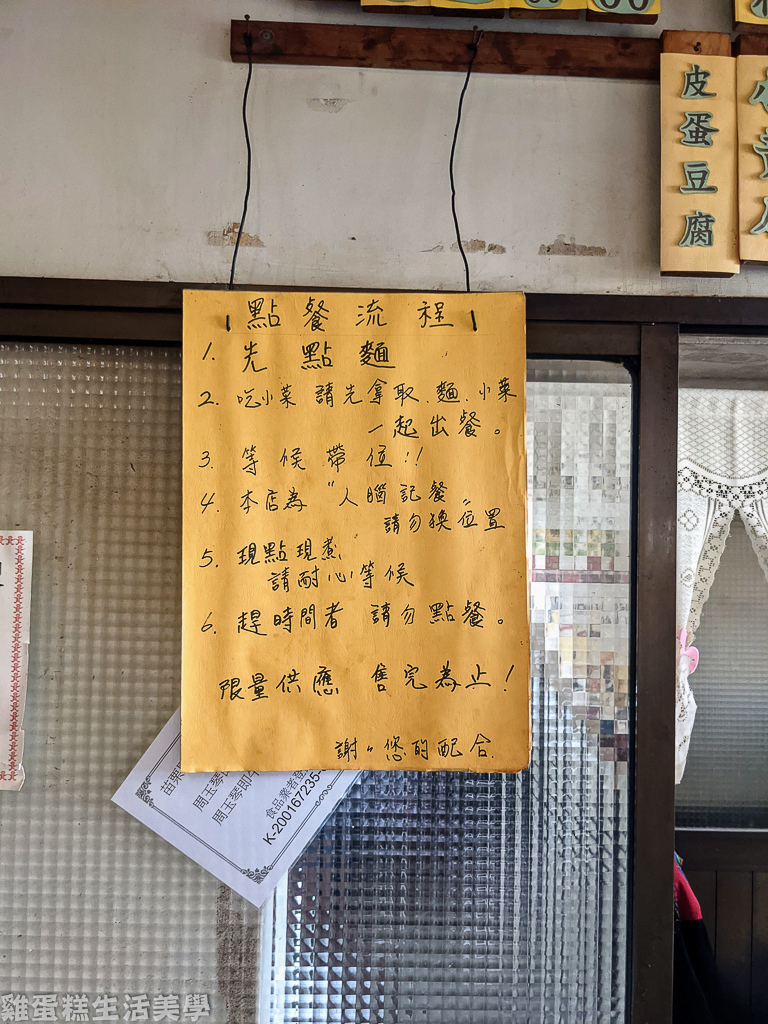 皮蛋豆腐
點餐流程
1. 先點麵
2. 吃小菜 請先拿取.麵.小菜
一起出餐。
3. 等候帶位!!
4. 本店為"人腦記餐"
請勿換位置
5. 現點現煮
請耐心等候
6. 趕時間者 請勿點餐。
限量供應 售完為止!
謝〃您的配合.
苗栗
周玉琴即
周玉琴即
食品業者登
K-200167235-
雞蛋糕生活美學